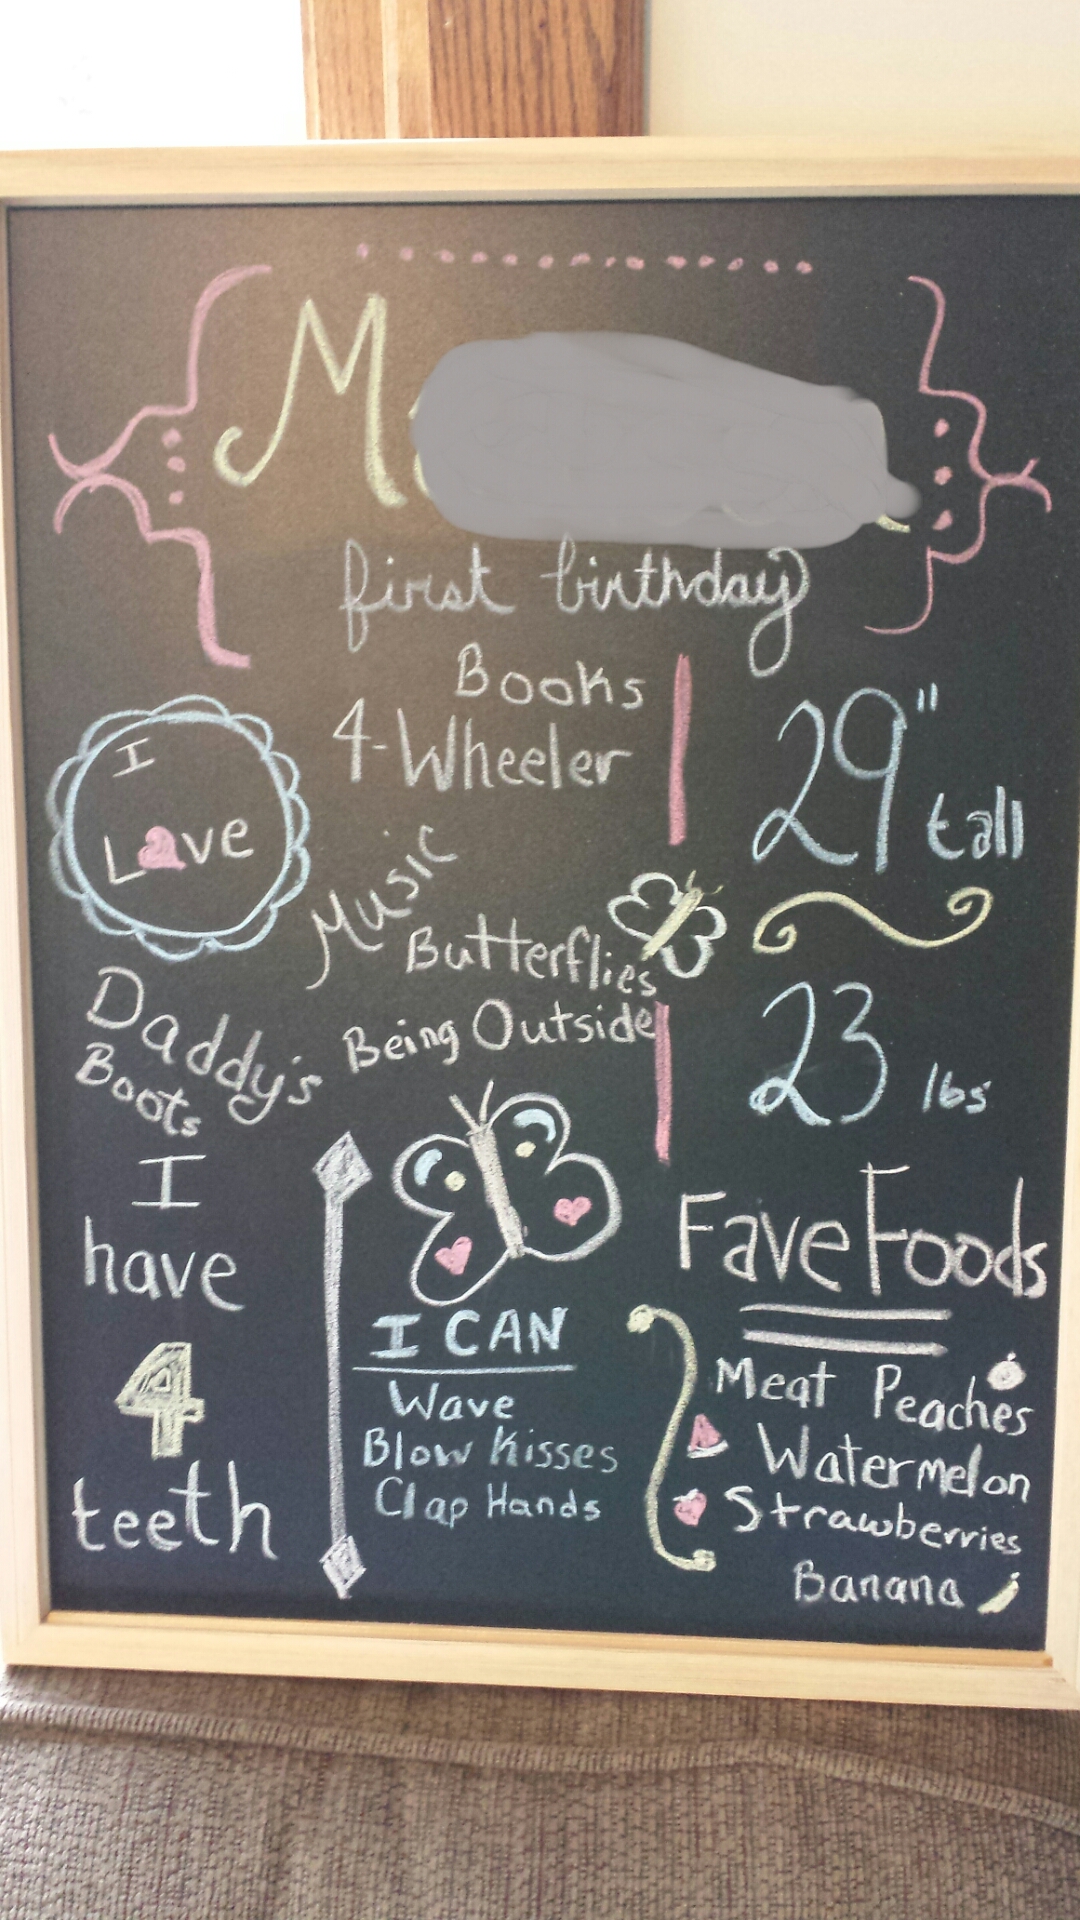 first birthday
I
Love
Books
4-Wheeler
Music
Butterflies
Being Outside
Daddy's
Boots
29" tall
23 lbs
I
have
4
teeth
I CAN
Wave
Blow Kisses
Clap Hands
Fave Foods
Meat Peaches
Watermelon
Strawberries
Banana